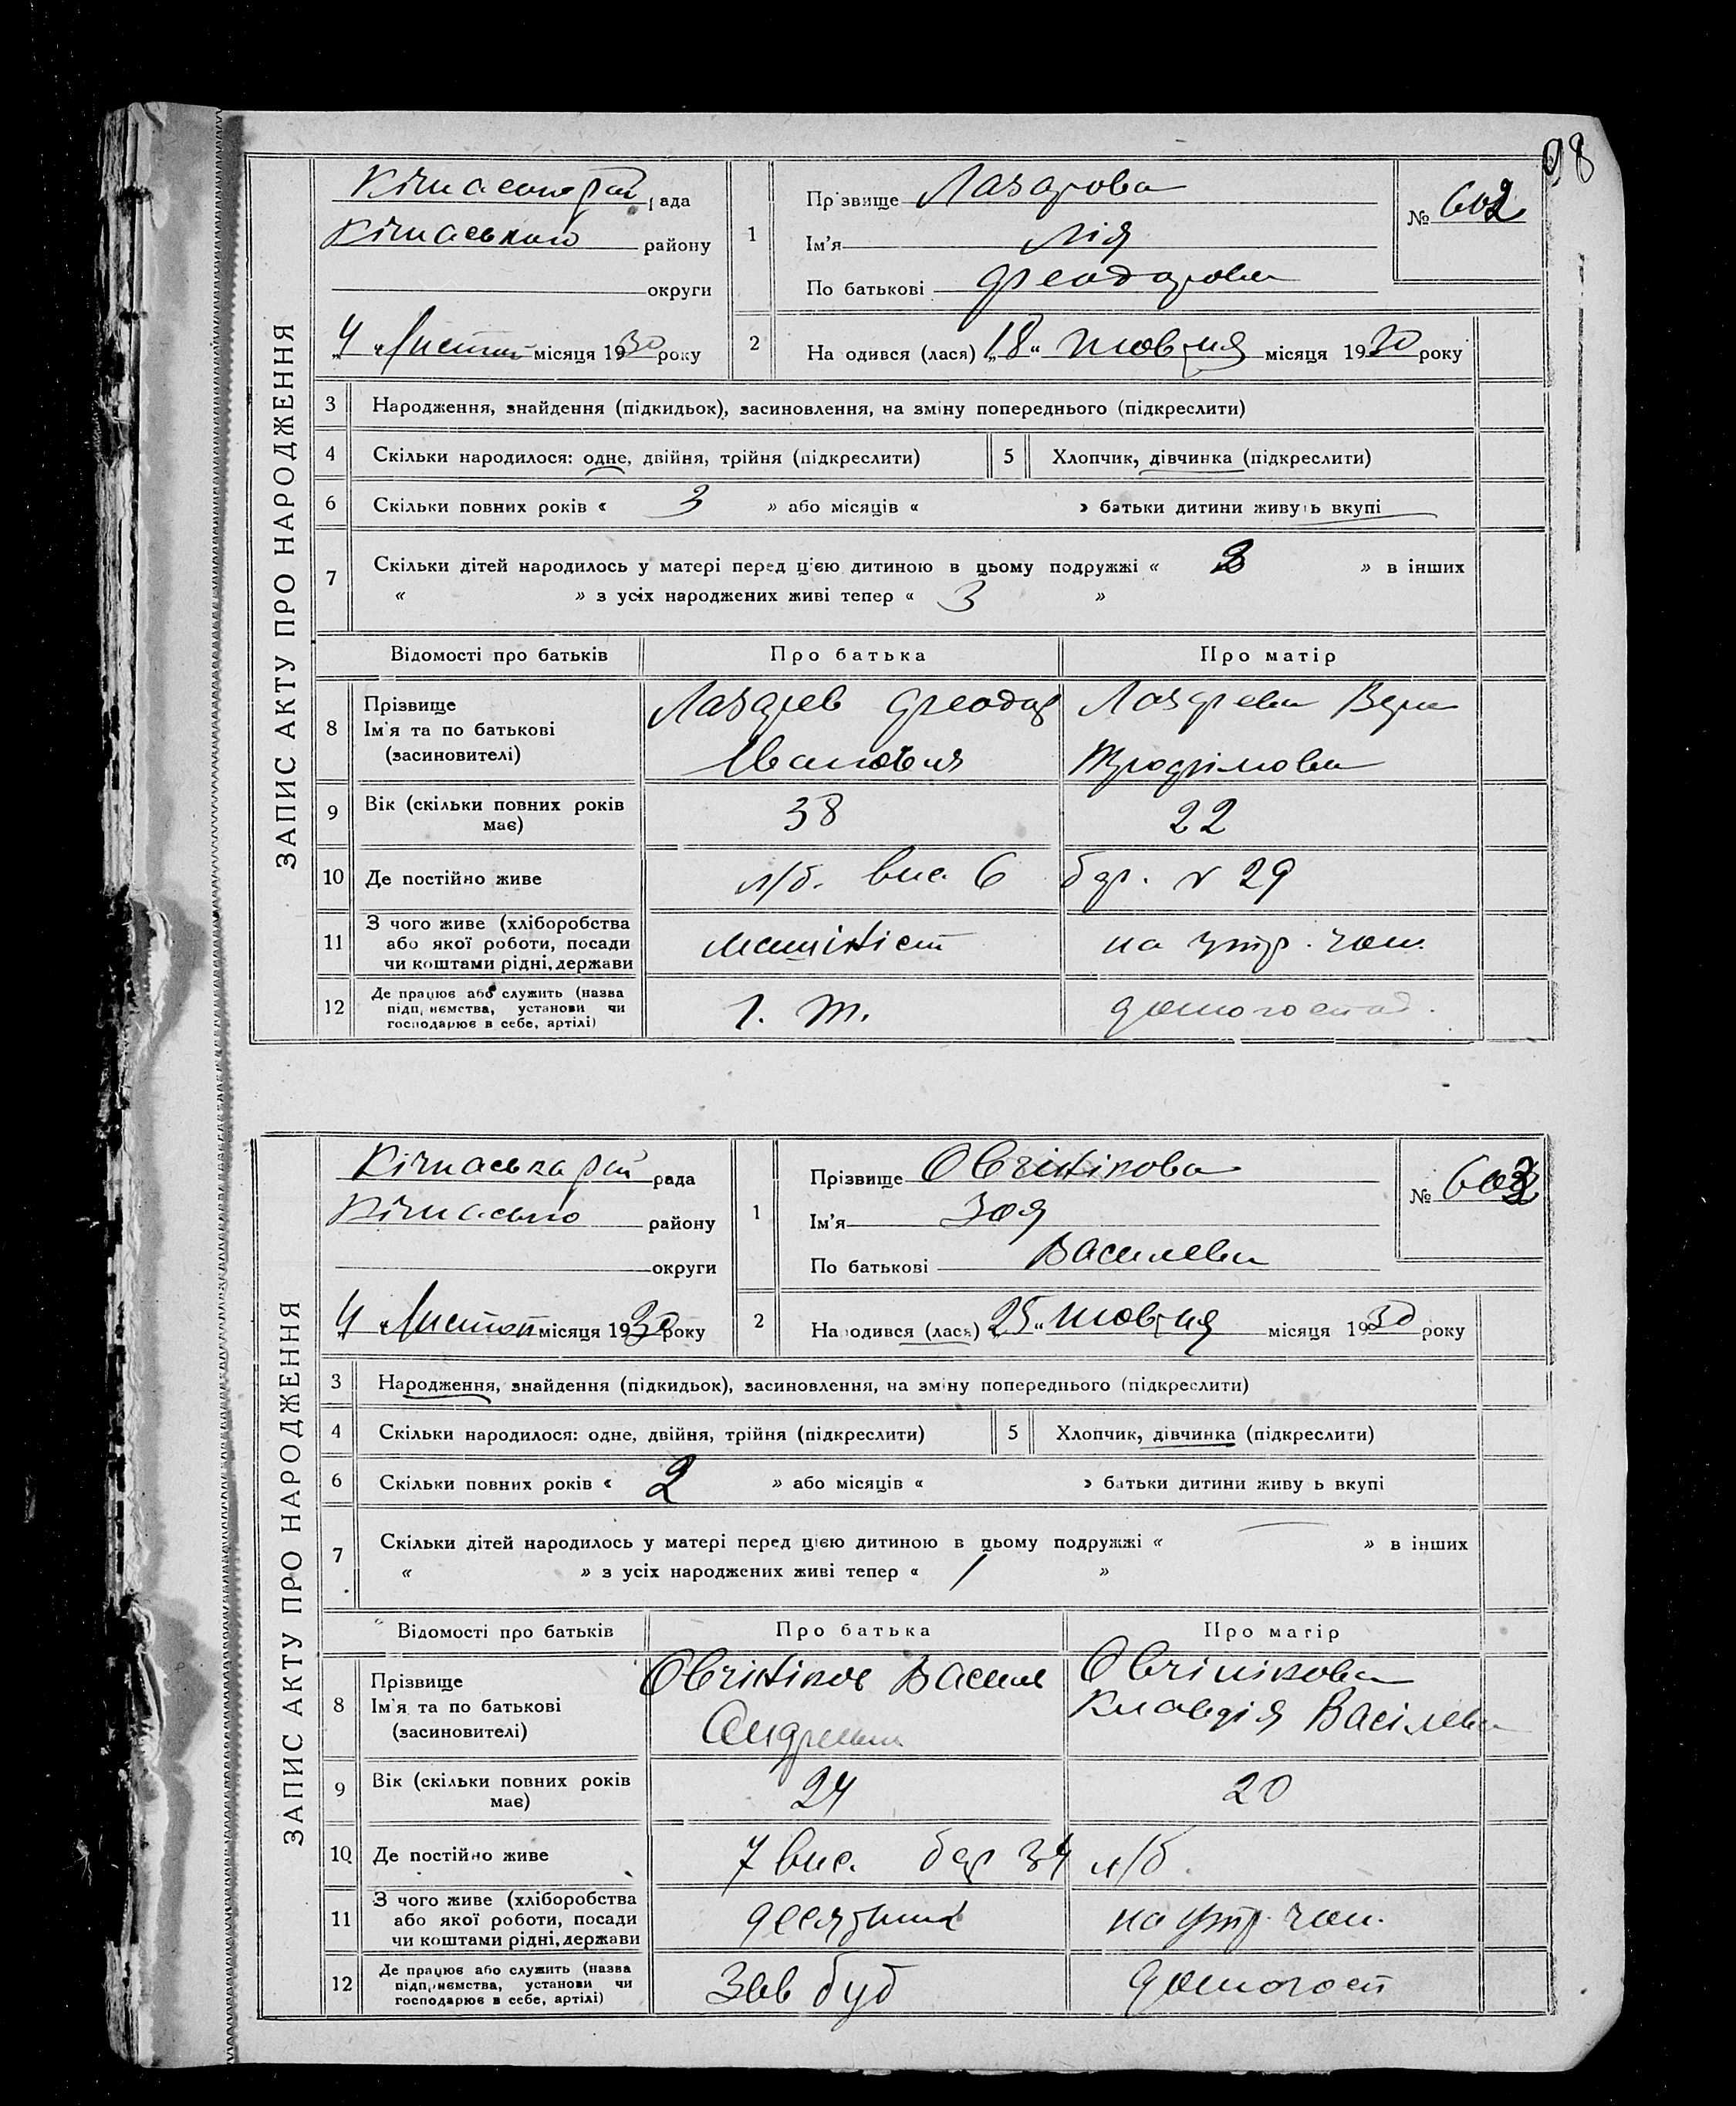 98
ЗАПИС АКТУ ПРО НАРОДЖЕННЯ
рада
Кічкаського району
округи
4 Листоп місяця 1930 року
1
Прізвище Лазарова
Ім'я Лія
По батькові Феодорова
№ 602
2
Народився (лася) „18“ жовтня місяця 1930 року
3 Народження, знайдення (підкидьок), засиновлення, на зміну попереднього (підкреслити)
4 Скільки народилося: одне, двійня, трійня (підкреслити) 5 Хлопчик, дівчинка (підкреслити)
6 Скільки повних років « 3 » або місяців « » батьки дитини живуть вкупі
7 Скільки дітей народилось у матері перед цією дитиною в цьому подружжі « » в інших
« » з усіх народжених живі тепер « 3 »
Відомості про батьків Про батька Про матір
8 Прізвище
Ім'я та по батькові
(засновителі)
Лазарев Феодор
Лазарева Вера
Трофімова
9 Вік (скільки повних років має) 38 22
10 Де постійно живе л/б. вис. 6 бар. № 29
11 З чого живе (хліборобства
або якої роботи, посади
чи коштами рідні, держави
машініст на утр. чол.
12 Де працює або служить (назва
підприємства, установи чи
господарює в себе, артілі)
домогоспод.
ЗАПИС АКТУ ПРО НАРОДЖЕННЯ
Кічкаська рай рада
району
округи
4 Листоп місяця 1930 року
1
Прізвище Овчінікова
Ім'я Зоя
По батькові Василева
№ 603
2
Народився (лася) „25“ жовтня місяця 1930 року
3 Народження, знайдення (підкидьок), засиновлення, на зміну попереднього (підкреслити)
4 Скільки народилося: одне, двійня, трійня (підкреслити) 5 Хлопчик, дівчинка (підкреслити)
6 Скільки повних років « 2 » або місяців « » батьки дитини живуть вкупі
7 Скільки дітей народилось у матері перед цією дитиною в цьому подружжі « — » в інших
« » з усіх народжених живі тепер « 1 »
Відомості про батьків Про батька Про матір
8 Прізвище
Ім'я та по батькові
(засиновителі)
Овчініков Василь
Овчінікова
Клавдія Васілева
9 Вік (скільки повних років має) 24 20
10 Де постійно живе 7 вис. бар 34 л/б.
11 З чого живе (хліборобства
або якої роботи, посади
чи коштами рідні, держави
десятник на утр. чол.
12 Де працює або служить (назва
підприємства, установи чи
господарює в себе, артілі)
Зав буд домогосп